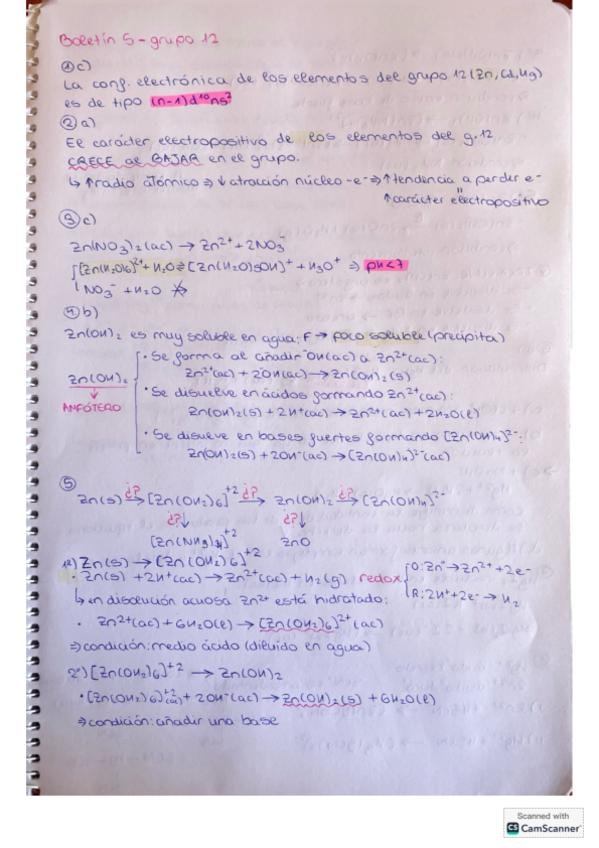 Boletín 5 - grupo 12
① c)
La conf. electrónica de los elementos del grupo 12 (Zn, Cd, Hg)
es de tipo (n-1)d¹⁰ns²
② a)
El carácter electropositivo de los elementos del g.12
CRECE al BAJAR en el grupo.
↳ ↑radio atómico ⇒ ↓ atracción núcleo -e⁻ ⇒ ↑tendencia a perder e⁻
=
↑carácter electropositivo
③ c)
Zn(NO₃)₂(ac) → Zn²⁺ + 2NO₃⁻
[Zn(H₂O)6]²⁺ + H₂O ⇌ [Zn(H₂O)5OH]⁺ + H₃O⁺ ⇒ pH<7
NO₃⁻ + H₂O ↛
④ b)
Zn(OH)₂ es muy soluble en agua: F → poco soluble (precipita)
Zn(OH)₂
↓
ANFÓTERO
· Se forma al añadir ⁻OH(ac) a Zn²⁺(ac):
Zn²⁺(ac) + 2OH⁻(ac) → Zn(OH)₂(s)
· Se disuelve en ácidos formando Zn²⁺(ac):
Zn(OH)₂(s) + 2H⁺(ac) → Zn²⁺(ac) + 2H₂O(l)
· Se disueve en bases fuertes formando [Zn(OH)₄]²⁻:
Zn(OH)₂(s) + 2OH⁻(ac) → [Zn(OH)₄]²⁻(ac)
⑤
Zn(s) →¿? [Zn(OH₂)6]⁺² →¿? Zn(OH)₂ →¿? [Zn(OH)₄]²⁻
¿?↓ ¿?↓
[Zn(NH₃)₄]⁺² ZnO
1º) Zn(s) → [Zn(OH₂)6]⁺²
· Zn(s) + 2H⁺(ac) → Zn²⁺(ac) + H₂(g) redox
O: Zn → Zn²⁺ + 2e⁻
R: 2H⁺ + 2e⁻ → H₂
↳ en disolución acuosa Zn²⁺ está hidratado:
· Zn²⁺(ac) + 6H₂O(l) → [Zn(OH₂)6]²⁺(ac)
⇒ condición: medio ácido (diluido en agua)
2º) [Zn(OH₂)6]⁺² → Zn(OH)₂
· [Zn(OH₂)6]⁺²(ac) + 2OH⁻(ac) → Zn(OH)₂(s) + 6H₂O(l)
⇒ condición: añadir una base
Scanned with
CS CamScanner